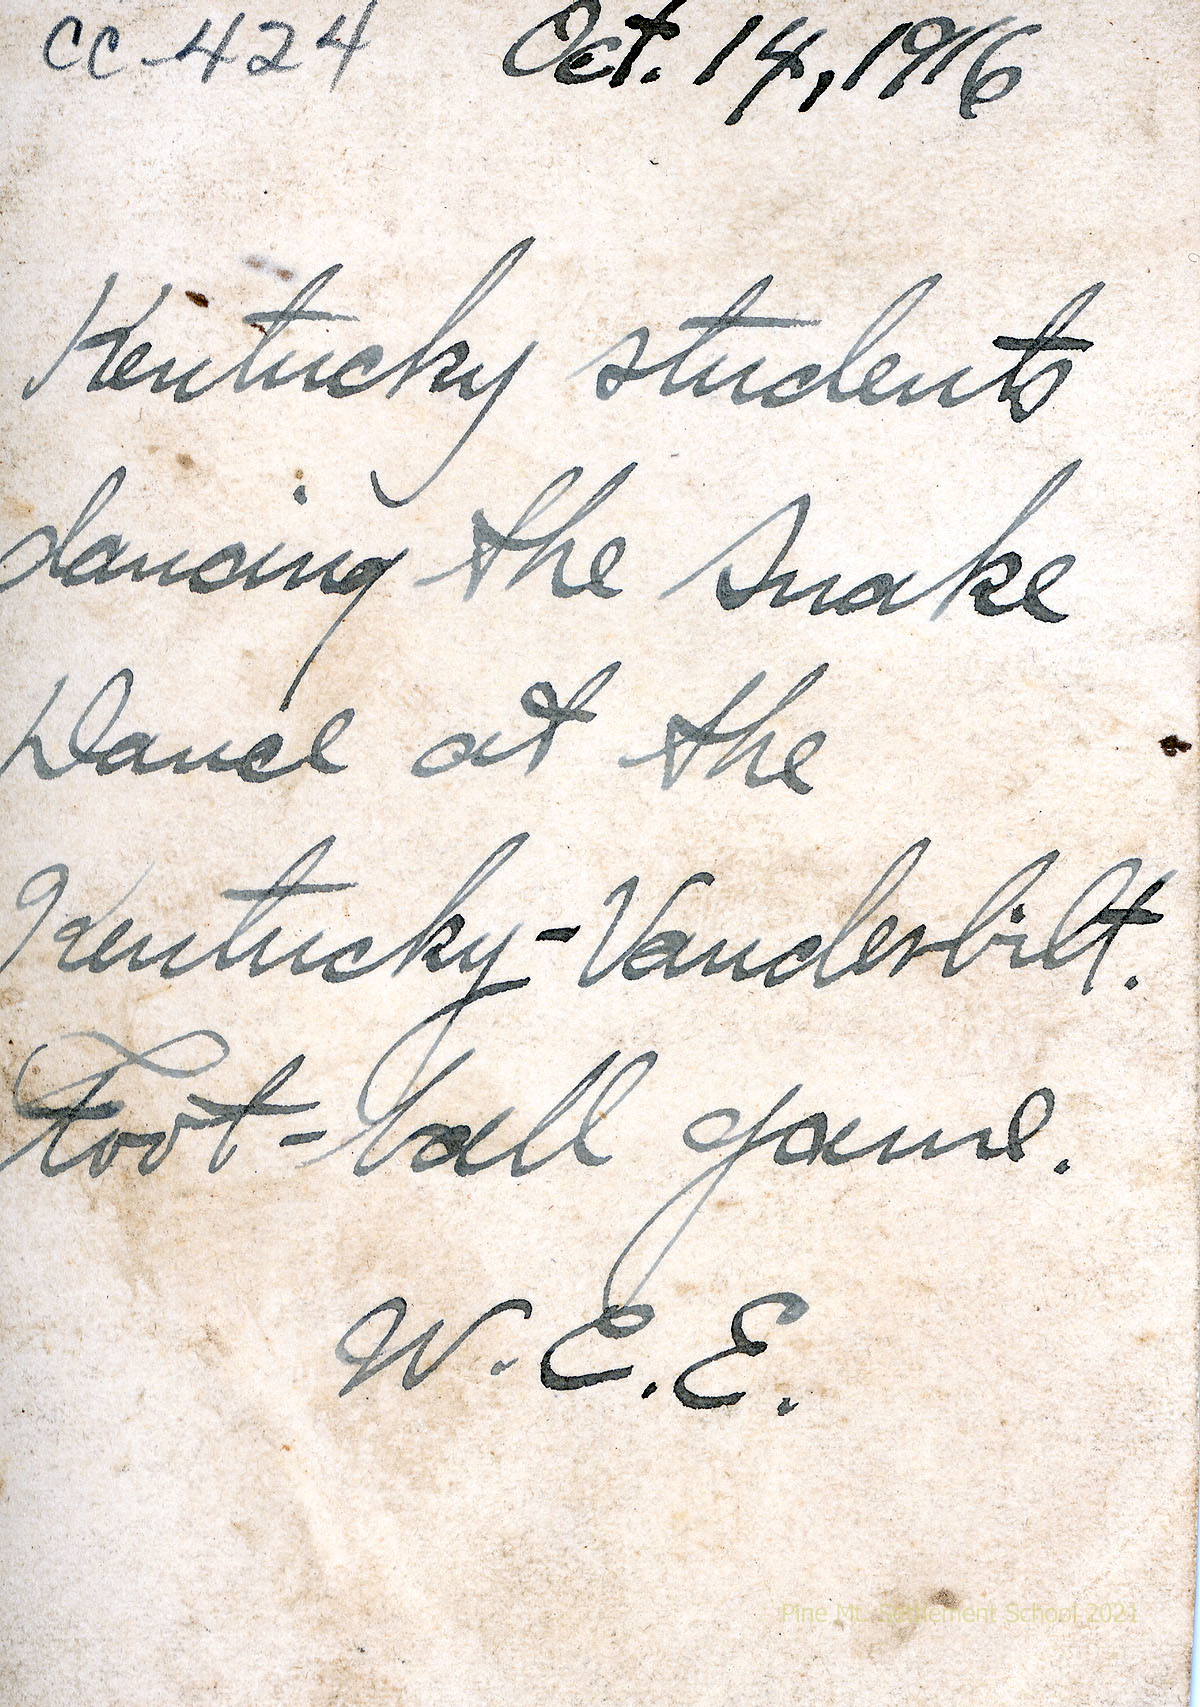 cc-424 Oct. 14, 1916
Kentucky students
dancing the Snake
Dance at the
Kentucky-Vanderbilt.
Foot-ball game.
W.E.E.
Pine Mt. Settlement School 2021